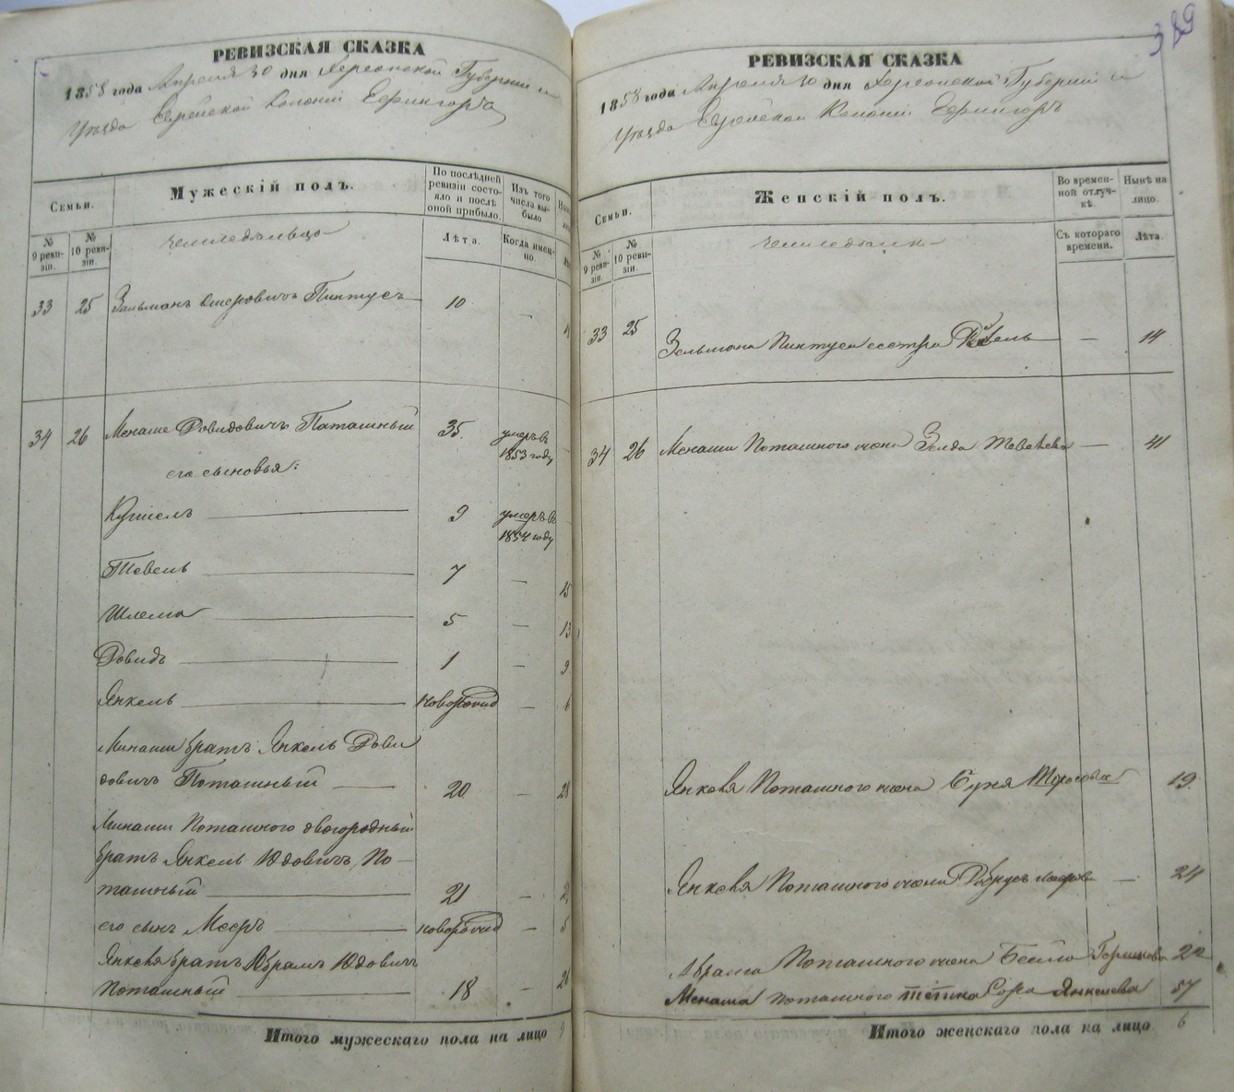 РЕВИЗСКАЯ СКАЗКА
1858 года Апреля 30 дня Херсонской Губернии и
Уѣзда Еврейской Колоніи Ефингаръ
Семьи.
Мужескій полъ.
По послѣдней ревизіи состояло и послѣ оной прибыло.
Изъ того числа выбыло
№ 9 ревизіи.
№ 10 ревизіи.
Лѣта.
Когда именно.
земледѣльцы
33 25 Зальманъ Пинтусъ 10 —
34 26 Менаше Довидовичъ Поташный 35 умеръ въ 1853 году
его сыновья:
Кушель 9 умеръ въ 1854 году
Тевель 7 — 15
Шлема 5 — 13
Довидъ 1 — 9
Янкель новорожд — 6
Минаши братъ Янкель Дови
довичъ Поташный 20 — 28
Минаши Поташного двоюродный
братъ Янкель Юдовичъ По-
ташный 21 —
его сынъ Мееръ новорожд — 5
Янкеля братъ Абрамъ Юдовичъ
Поташный 18 — 26
Итого мужескаго пола на лицо 9
389
РЕВИЗСКАЯ СКАЗКА
1858 года Апреля 30 дня Херсонской Губерніи и
Уѣзда Еврейской Колоніи Ефингаръ
Семьи.
Женскій полъ.
Во временной отлучкѣ.
Нынѣ на лицо.
№ 9 ревизіи.
№ 10 ревизіи.
Съ котораго времени.
Лѣта.
33 25
Зельмана Пинтуса сестра — 14
34 26 Менаши Поташного жена Зелда Тевелева — 41
Янкеля Поташного жена 19
Янкеля Поташного жена — 24
Абрама Поташного жена Бейла Гершкова 22
Менаша Поташного тётка Сора Янкелева 57
Итого женскаго пола на лицо 6